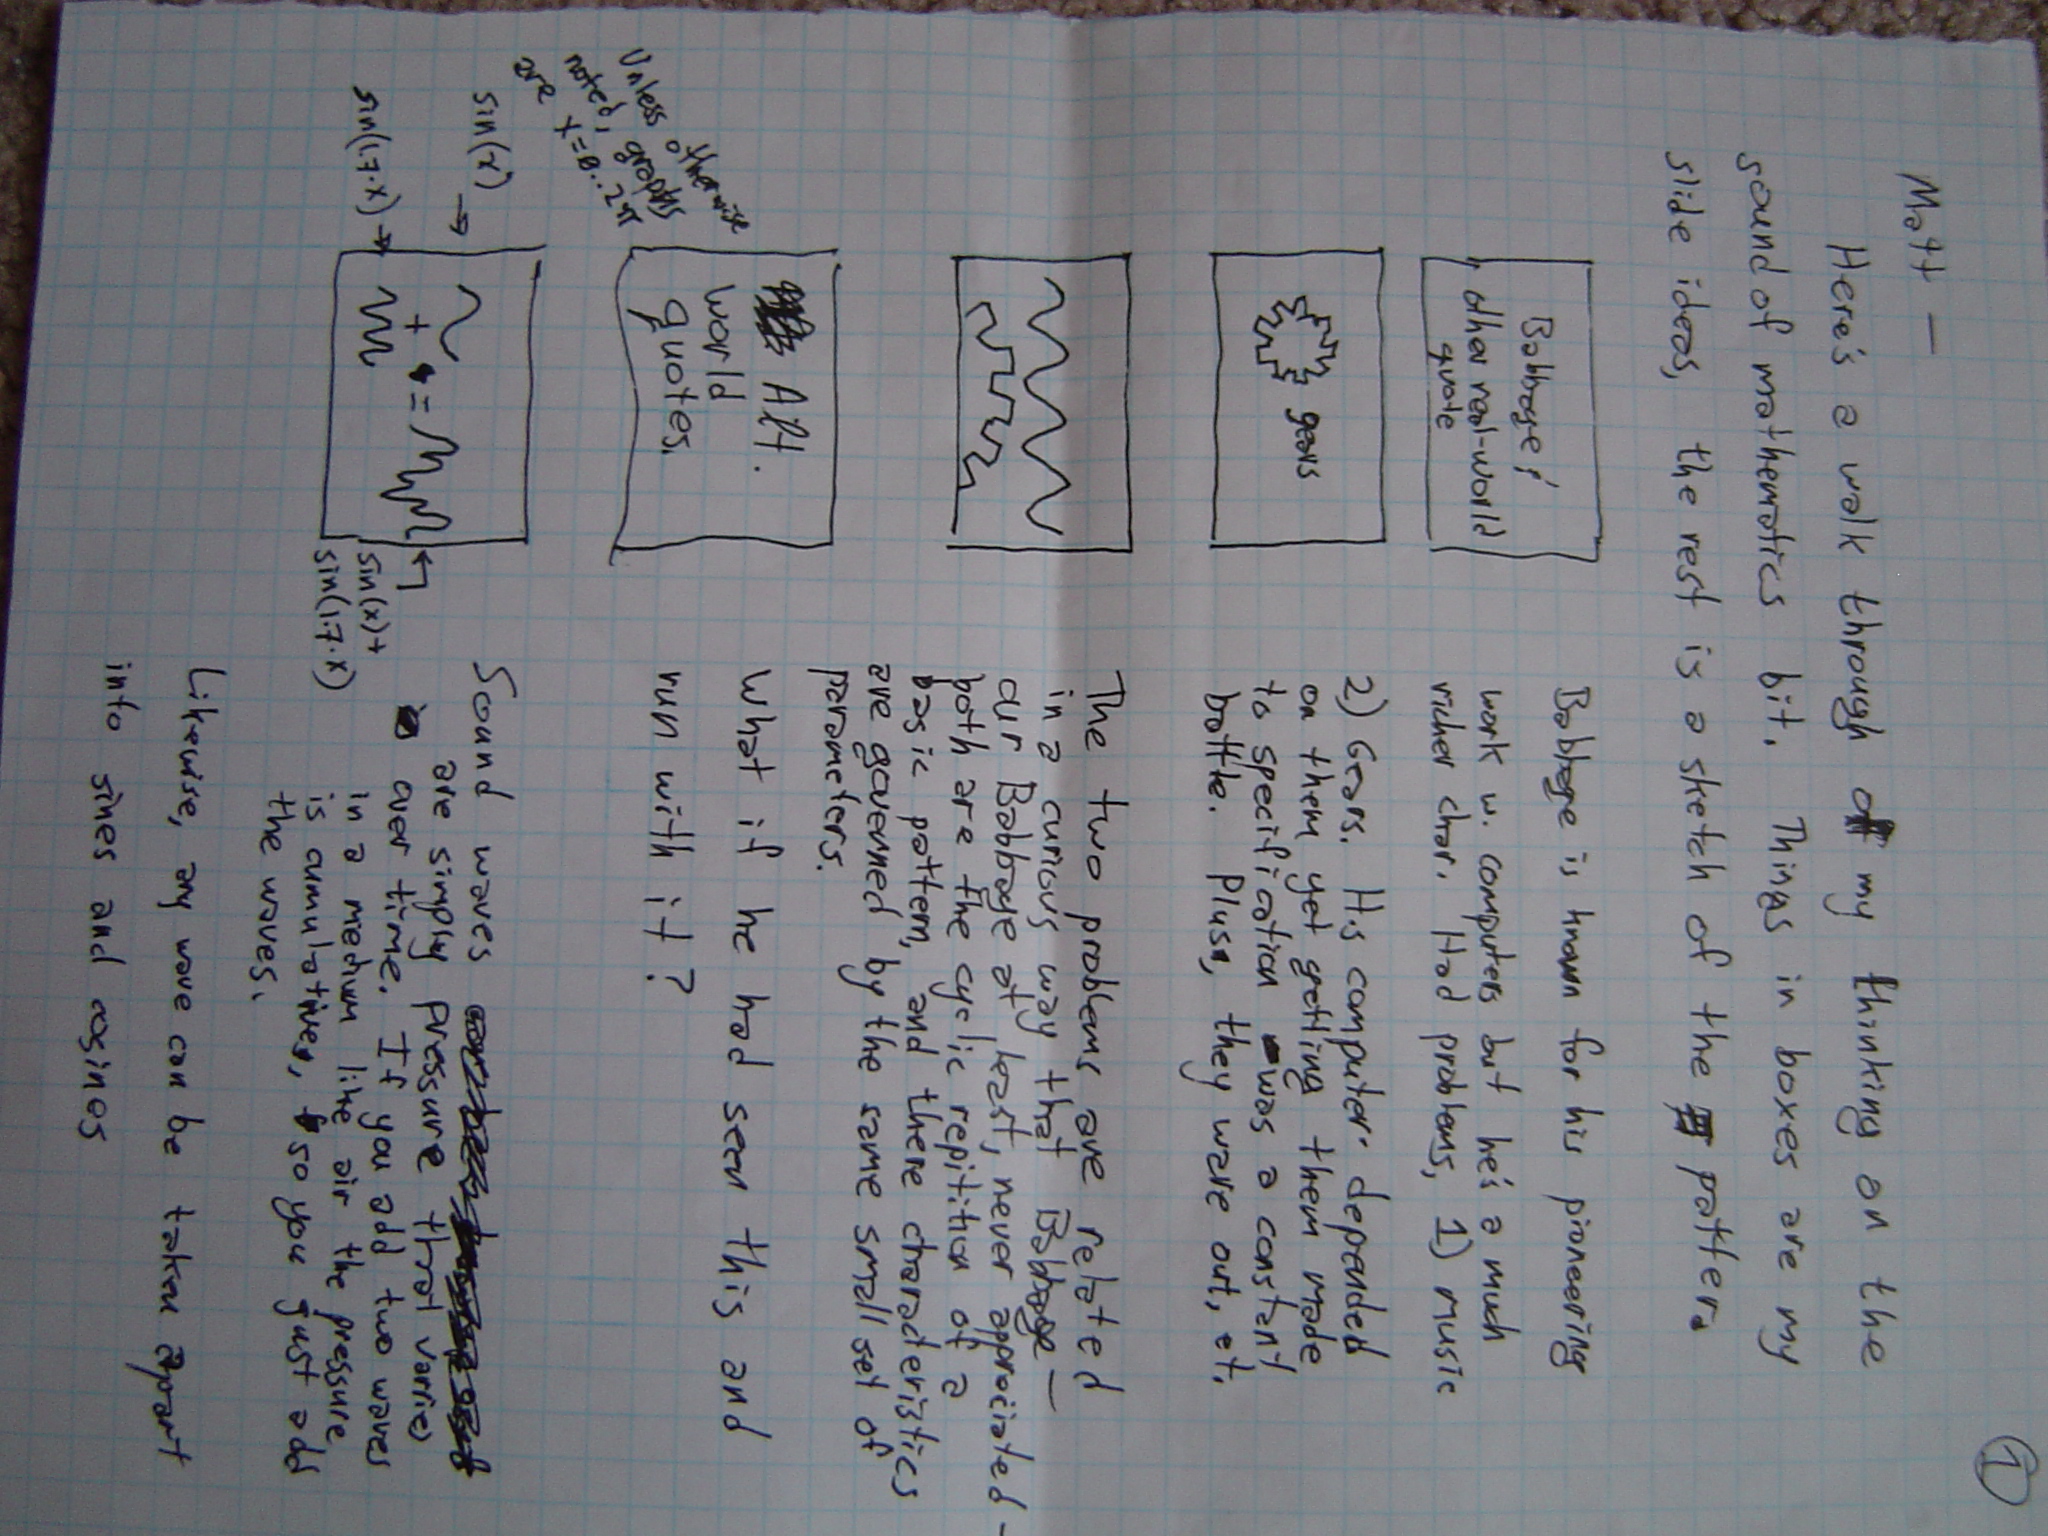 1
Matt —
Here's a walk through my thinking on the
sound of mathematics bit. Things in boxes are my
slide ideas, the rest is a sketch of the patter.
Babbage,
other real-world
quote
Babbage is known for his pioneering
work w. computers but he's a much
richer char. Had problems, 1) music
gears
2) Gears. His computer depended
on them yet getting them made
to specification was a constant
battle. Plus, they wore out, et.
The two problems are related
in a curious way that Babbage —
our Babbage at least, never appreciated —
both are the cyclic repitition of a
basic pattern, and there characteristics
are governed by the same small set of
parameters.
Alt.
world
quotes.
What if he had seen this and
run with it?
Unless otherwise
noted, graphs
are x=0..2π
sin(x) →
sin(1.7·x) →
+
=
sin(x)+
sin(1.7·x)
Sound waves
are simply pressure that varies
over time. If you add two waves
in a medium like air the pressure
is cumulative, so you just add
the waves.
Likewise, any wave can be taken apart
into sines and cosines